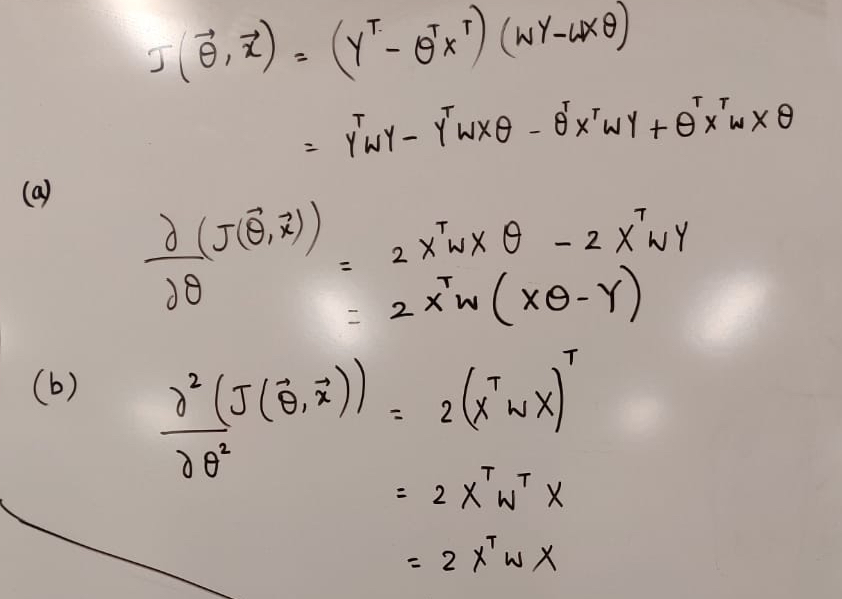 J(θ⃗, x⃗) = (Yᵀ - θᵀXᵀ) (WY - WXθ)
= YᵀWY - YᵀWXθ - θᵀXᵀWY + θᵀXᵀWXθ
(a)
∂(J(θ⃗, x⃗))/∂θ = 2XᵀWXθ - 2XᵀWY
= 2XᵀW(Xθ - Y)
(b) ∂²(J(θ⃗, x⃗))/∂θ² = 2(XᵀWX)ᵀ
= 2XᵀWᵀX
= 2XᵀWX